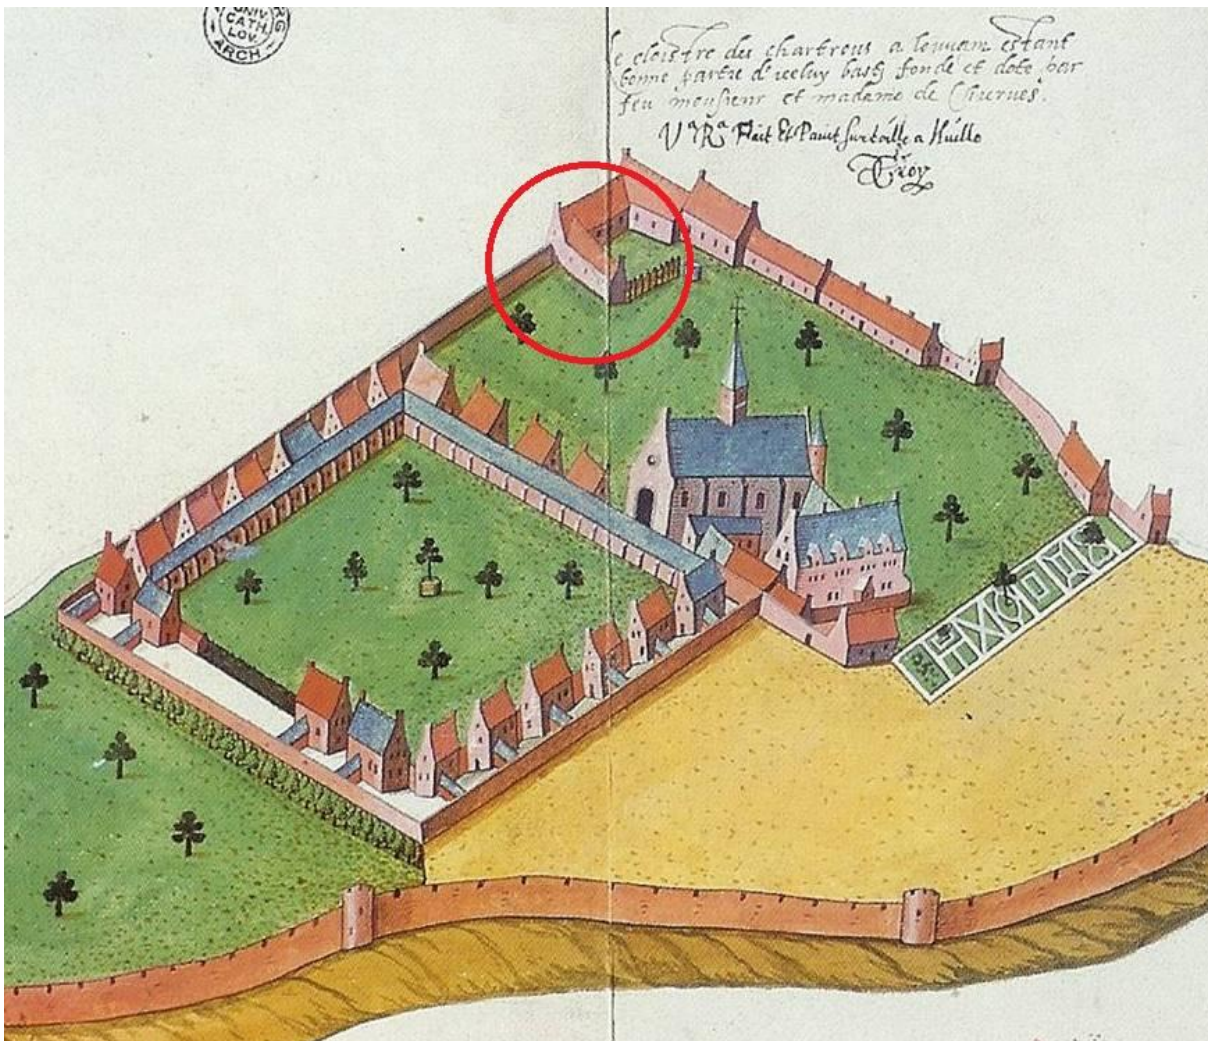 UNIV.
CATH.
LOV.
ARCH
le cloistre des chartrous a louvain estant
bonne partie d'iceluy basty fondé et doté par
feu monsieur et madame de Chierves.
Fait Et Paint sur toille a Huille
Croy